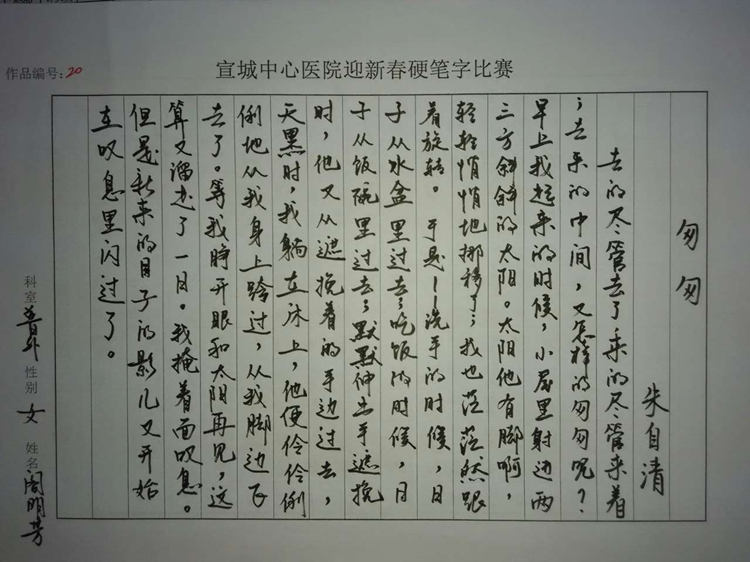 作品编号：20
宣城中心医院迎新春硬笔字比赛
匆匆
朱自清
去的尽管去了来的尽管来着
；去来的中间，又怎样的匆匆呢？
早上我起来的时候，小屋里射边两
三方斜斜的太阳。太阳他有脚啊，
轻轻悄悄地挪移了；我也茫茫然跟
着旋转。于是——洗手的时候，日
子从水盆里过去；吃饭的时候，日
子从饭碗里过去；默默伸出手遮挽
时，他又从遮挽着的手边过去，
天黑时，我躺在床上，他便伶伶俐
俐地从我身上跨过，从我脚边飞
去了。等我睁开眼和太阳再见，这
算又溜走了一日。我掩着面叹息。
但是新来的日子的影儿又开始
在叹息里闪过了。
科室 普外 性别 女 姓名 阁明芳